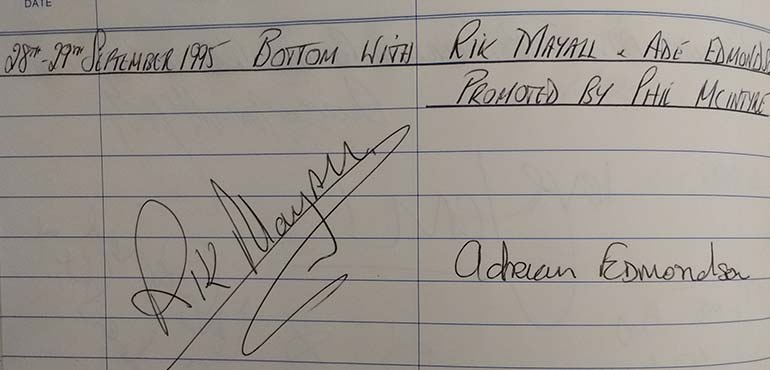 DATE
28TH-29TH SEPTEMBER 1995 BOTTOM WITH RIK MAYALL & ADE EDMONDS
PROMOTED BY PHIL MCINTYRE
Rik Mayall
Adrian Edmondson